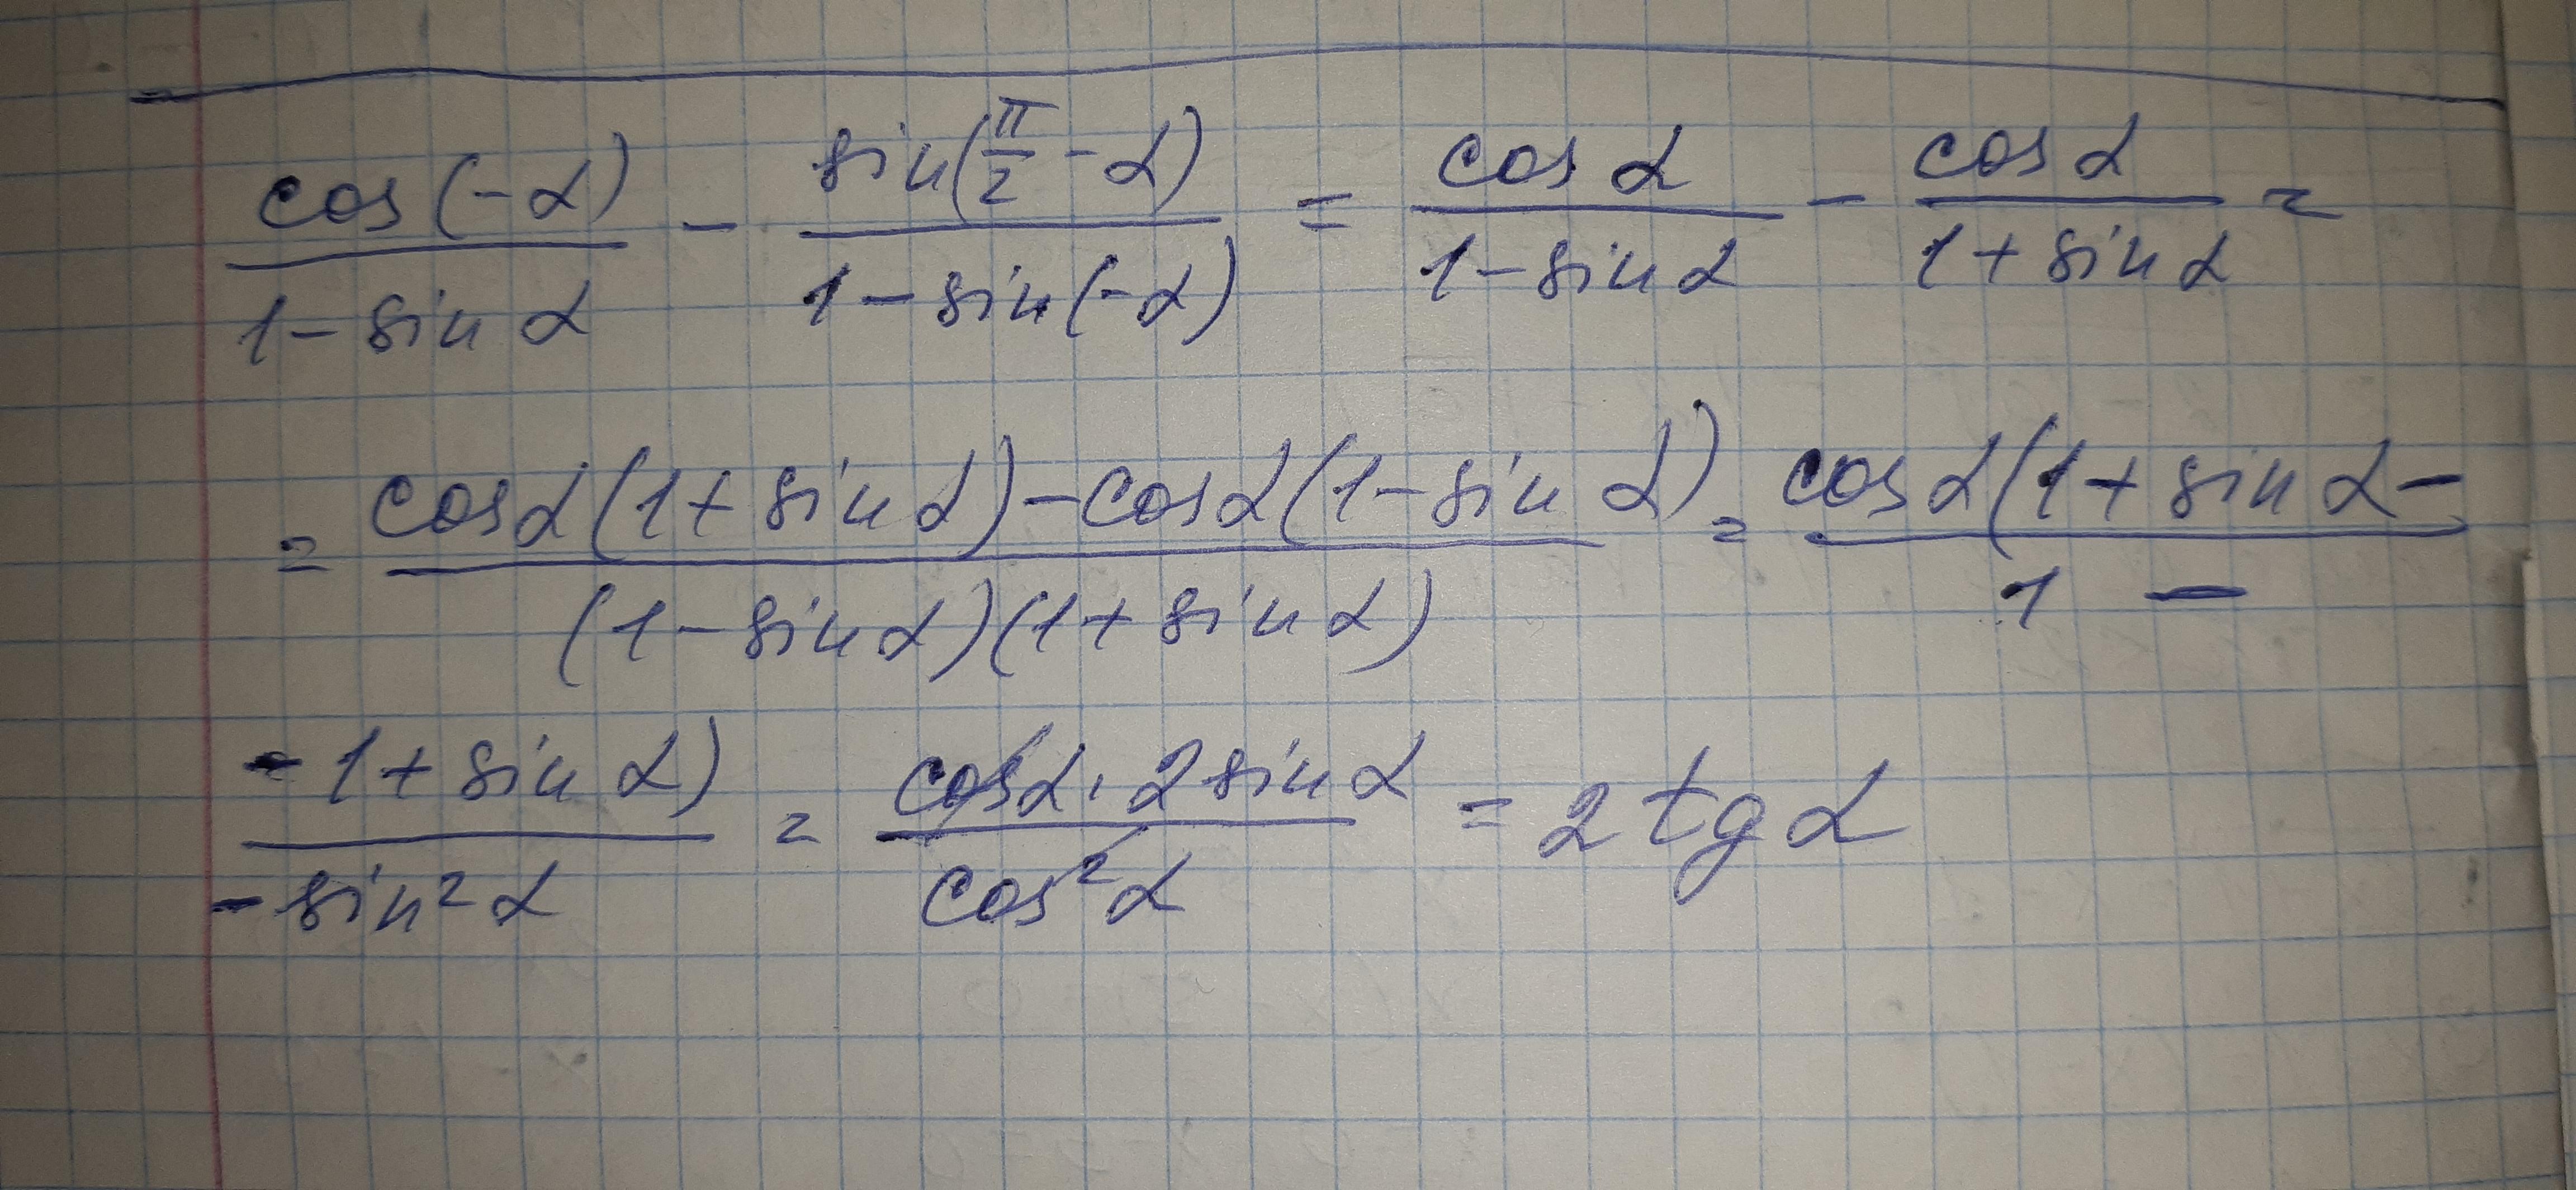 cos(-α)/(1-sin α) - sin(π/2-α)/(1-sin(-α)) = cos α/(1-sin α) - cos α/(1+sin α) =
= (cos α(1+sin α)-cos α(1-sin α))/((1-sin α)(1+sin α)) = cos α(1+sin α-/1 -
-1+sin α)/-sin²α = cos α·2sin α/cos²α = 2tg α